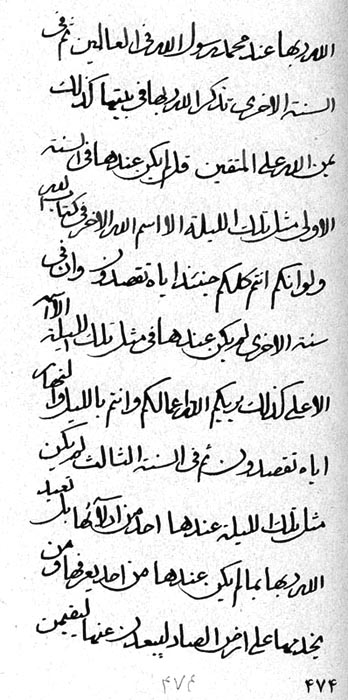 الله ربها عند محمد رسول الله فى العالمين ثم فى
السنة الاخرى تذكر الله ربها فى بيتها كذلك
يمن الله على المتقين قل لم يكن عندها فى السنة
الاولى مثل تلك الليلة الا اسم الله الاخر فى كتاب الله
ولو انكم انتم كلكم حينئذ اياه تقصدون وان فى
سنة الاخرى لم يكن عندها فى مثل تلك الليلة الا الله
الاعلى كذلك يريكم الله اعمالكم وانتم بالليل والنهار
اياه تقصدون ثم فى السنة الثالث لم يكن
مثل تلك الليلة عندها احد من ادلائها بل تعبد
الله ربها بما لم يكن عندها من احد يعرفها ومن
يخدمها على ارض الصاد ليبعدن عنها ليقيمن
۴۷۴
۴۷۴